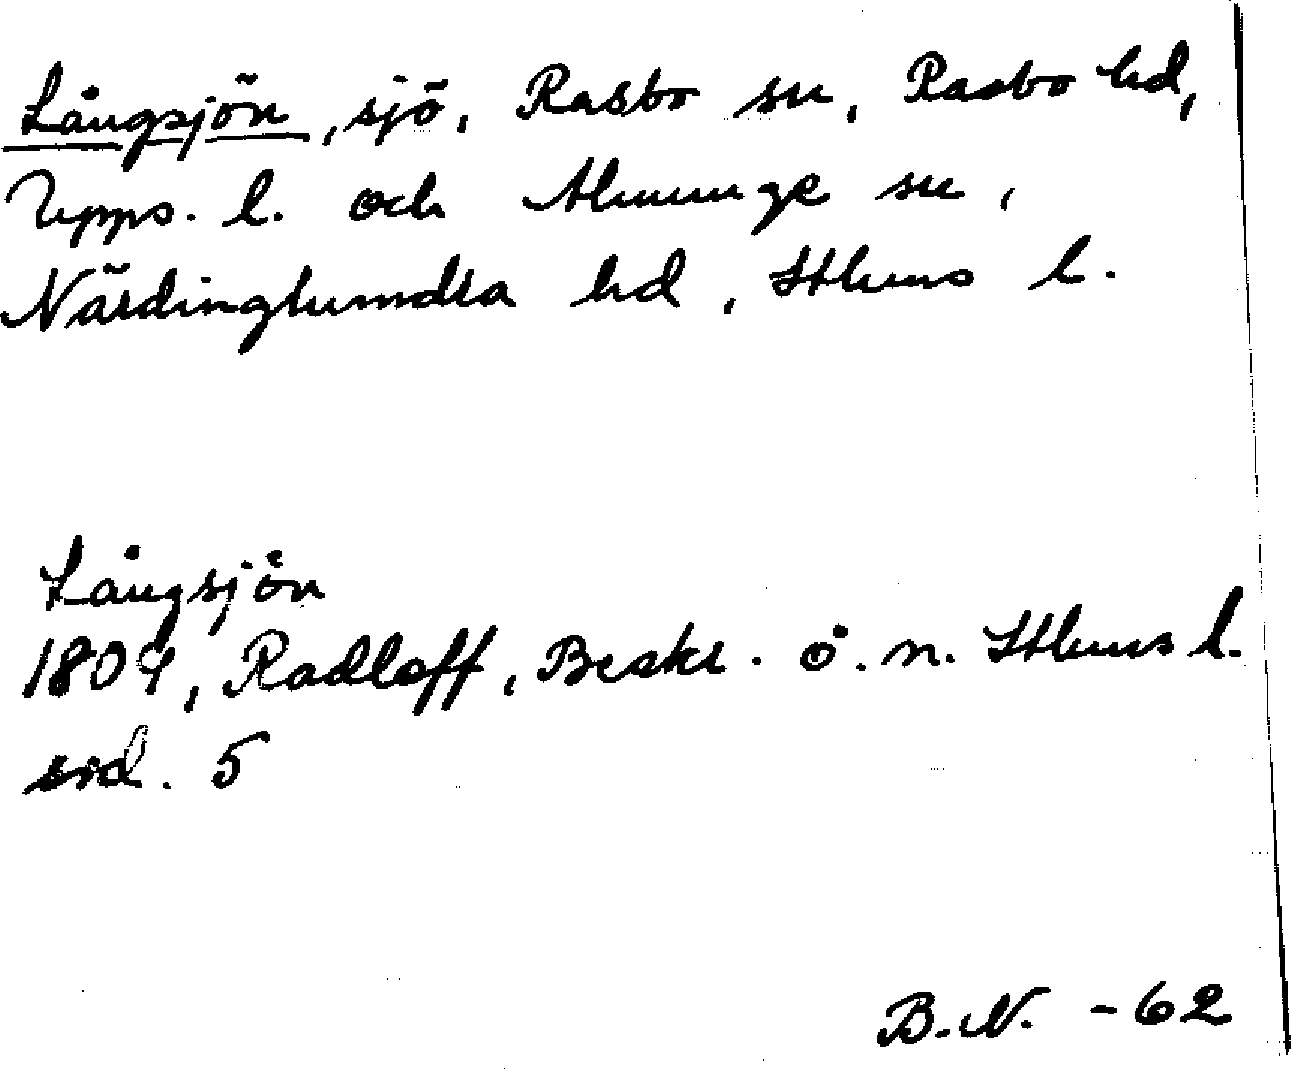 Långsjön, sjö, Rasbo sn, Rasbo hd,
Upps. l. och Almunge sn,
Närdinghundra hd, Sthms l.
Långsjön
1804, Radloff, Beskr. ö. n. Sthms l.
sid. 5
B.N. -62